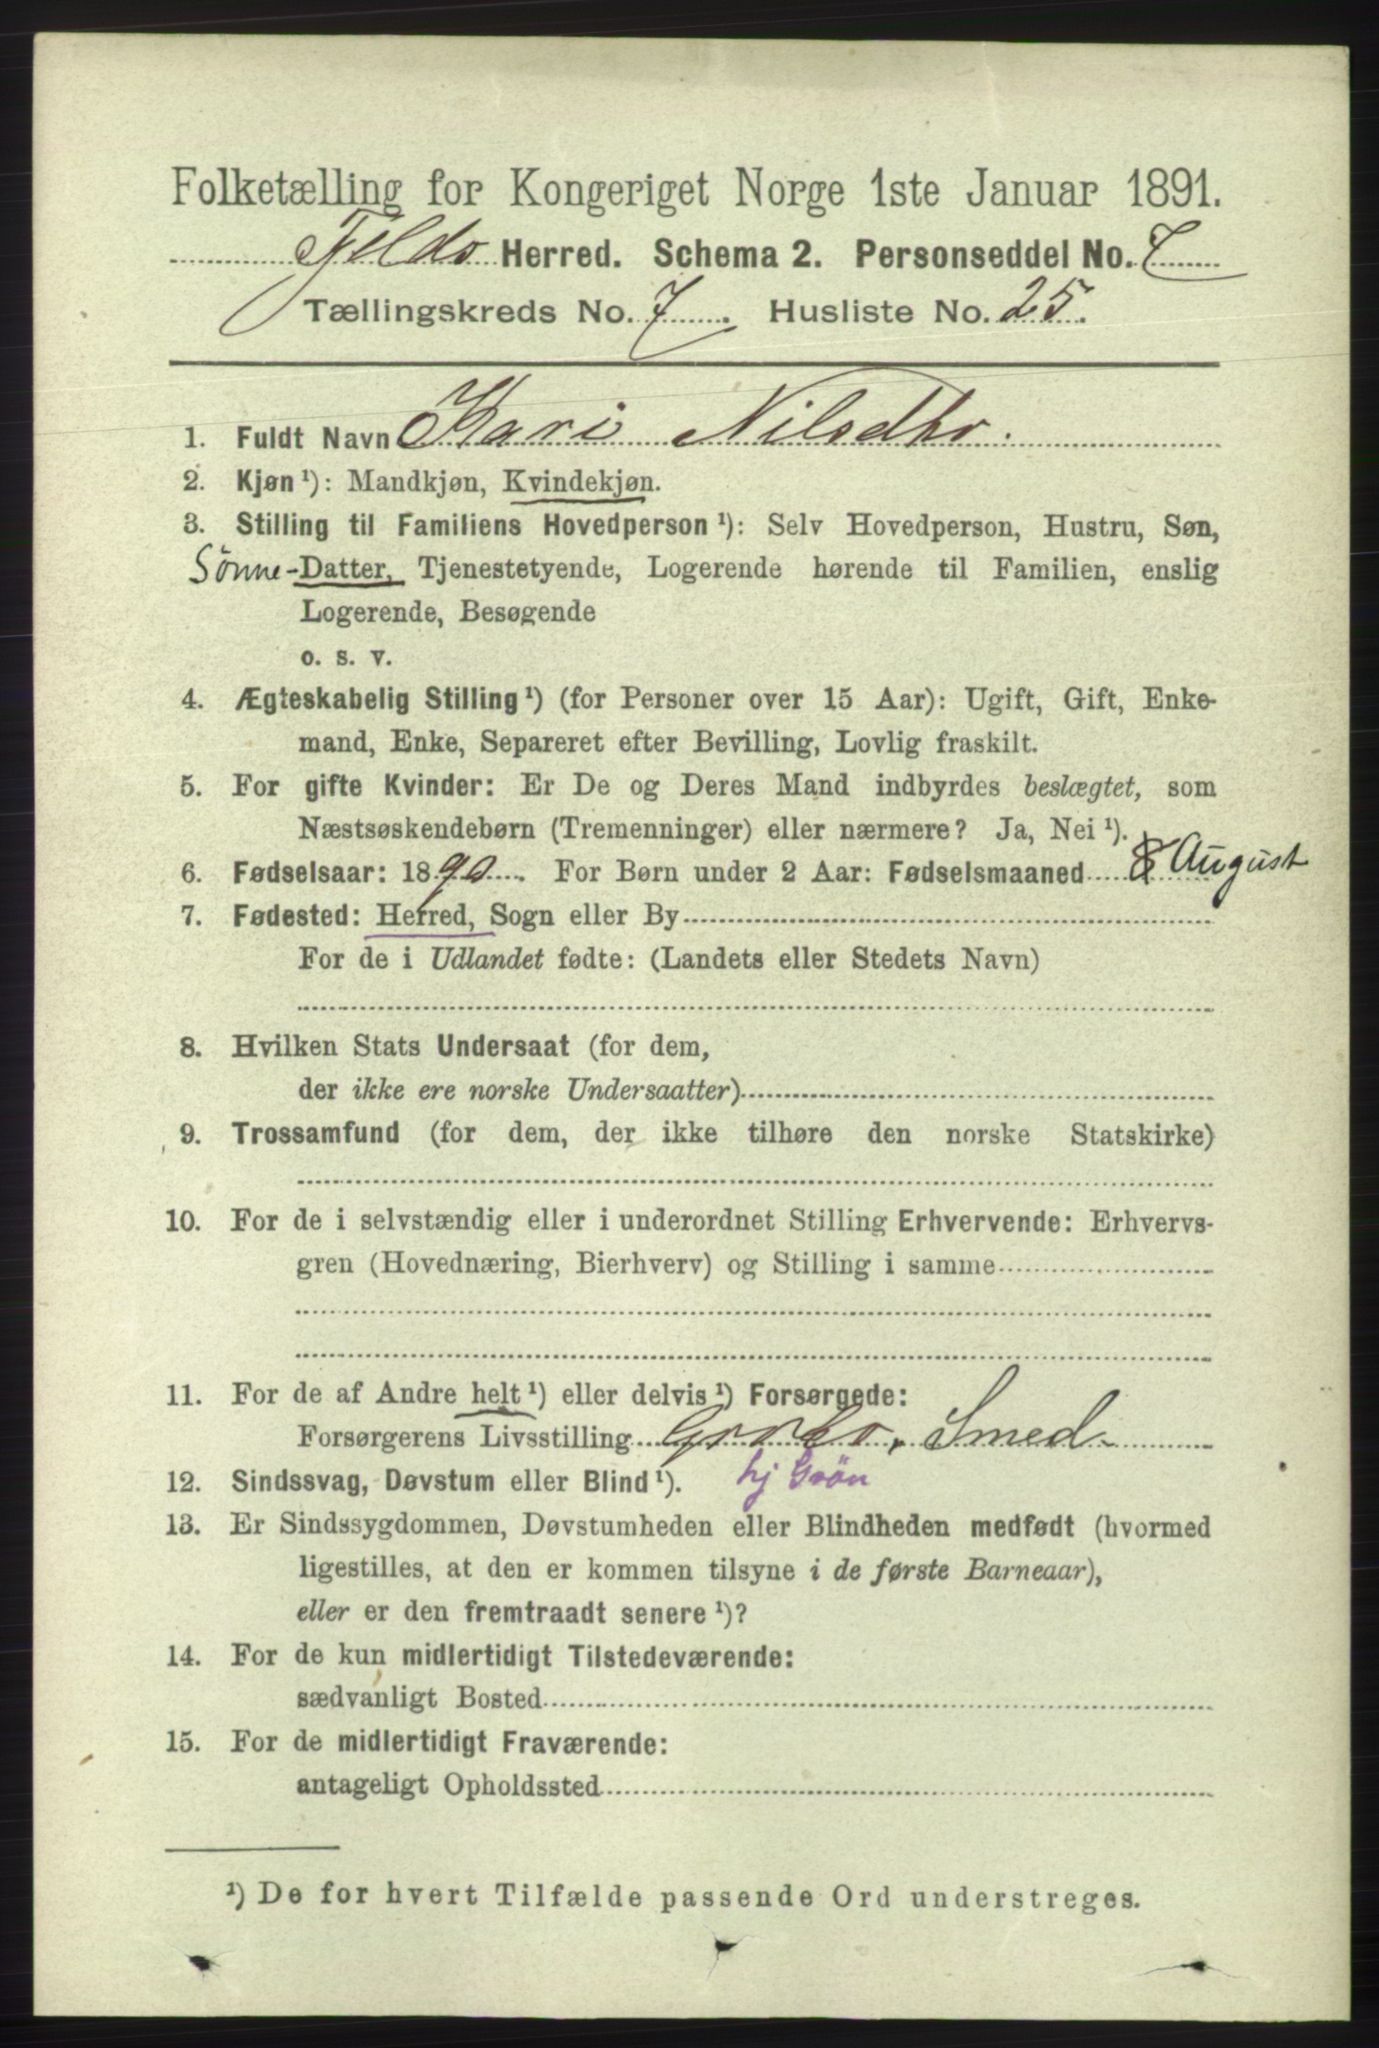 Folketælling for Kongeriget Norge 1ste Januar 1891.
Herred. Schema 2. Personseddel No. 7
Tællingskreds No. 7. Husliste No. 25.
1. Fuldt Navn Kari Nilsdtr.
2. Kjøn ¹): Mandkjøn, Kvindekjøn.
3. Stilling til Familiens Hovedperson ¹): Selv Hovedperson, Hustru, Søn,
Sönne-Datter, Tjenestetyende, Logerende hørende til Familien, enslig
Logerende, Besøgende
o. s. v.
4. Ægteskabelig Stilling ¹) (for Personer over 15 Aar): Ugift, Gift, Enke-
mand, Enke, Separeret efter Bevilling, Lovlig fraskilt.
5. For gifte Kvinder: Er De og Deres Mand indbyrdes beslægtet, som
Næstsøskendebørn (Tremenninger) eller nærmere? Ja, Nei ¹).
6. Fødselsaar: 1890. For Børn under 2 Aar: Fødselsmaaned 8 August
7. Fødested: Herred, Sogn eller By
For de i Udlandet fødte: (Landets eller Stedets Navn)
8. Hvilken Stats Undersaat (for dem,
der ikke ere norske Undersaatter)
9. Trossamfund (for dem, der ikke tilhøre den norske Statskirke)
10. For de i selvstændig eller i underordnet Stilling Erhvervende: Erhvervs-
gren (Hovednæring, Bierhverv) og Stilling i samme
11. For de af Andre helt ¹) eller delvis ¹) Forsørgede:
Forsørgerens Livsstilling Smed
12. Sindssvag, Døvstum eller Blind ¹).
13. Er Sindssygdommen, Døvstumheden eller Blindheden medfødt (hvormed
ligestilles, at den er kommen tilsyne i de første Barneaar),
eller er den fremtraadt senere ¹)?
14. For de kun midlertidigt Tilstedeværende:
sædvanligt Bosted
15. For de midlertidigt Fraværende:
antageligt Opholdssted
¹) De for hvert Tilfælde passende Ord understreges.